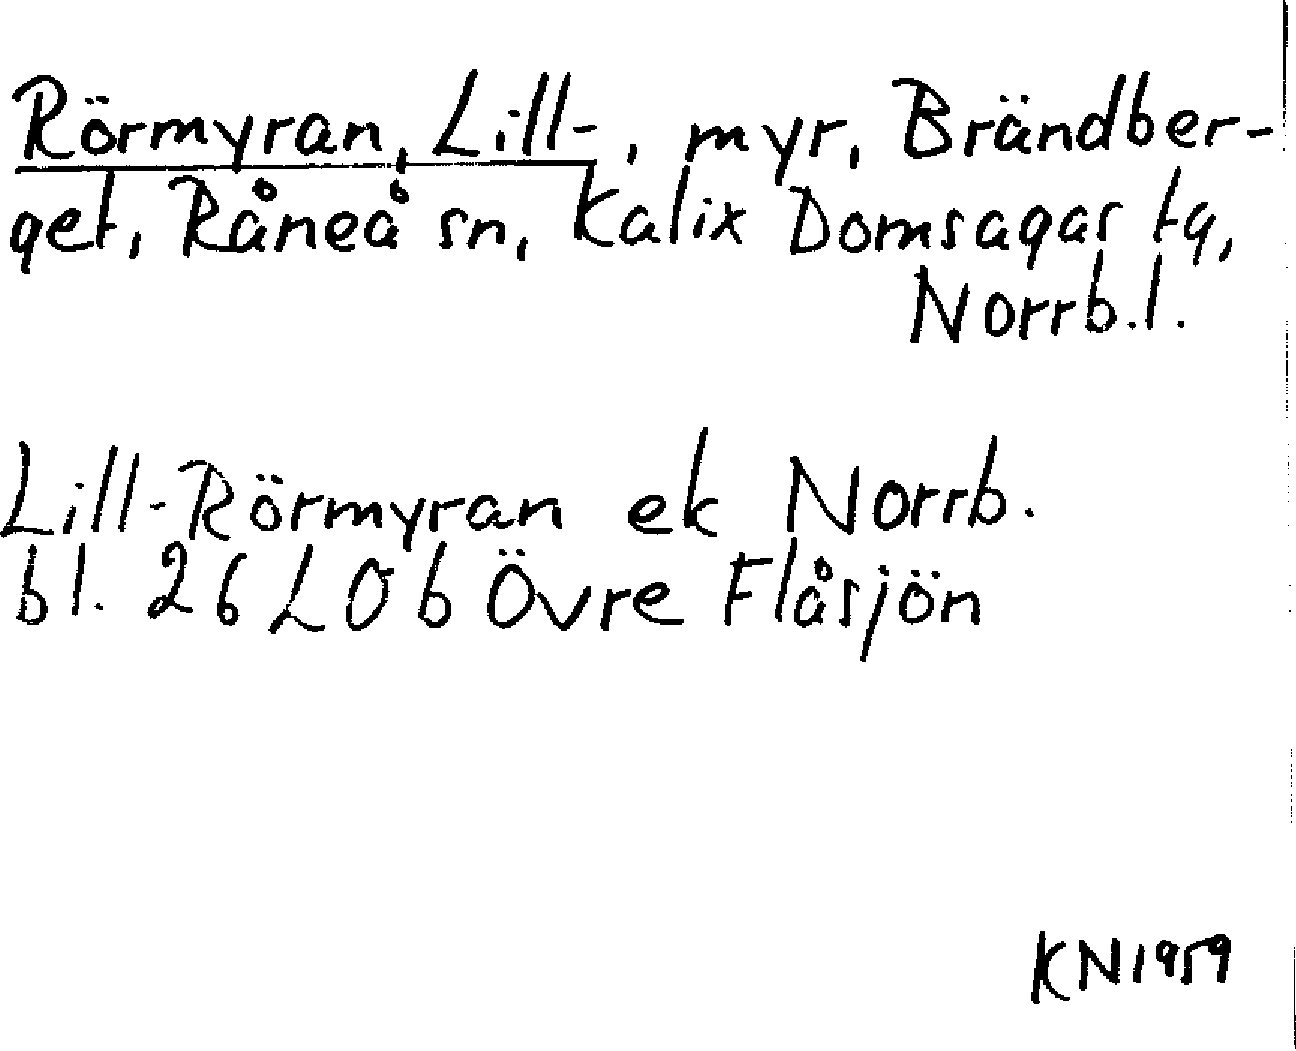 Rörmyran, Lill-, myr, Brändber-
get, Råneå sn, Kalix Domsagas tg,
Norrb.l.
Lill-Rörmyran ek Norrb.
bl. 26 L 0 b Övre Flåsjön
KN 1959